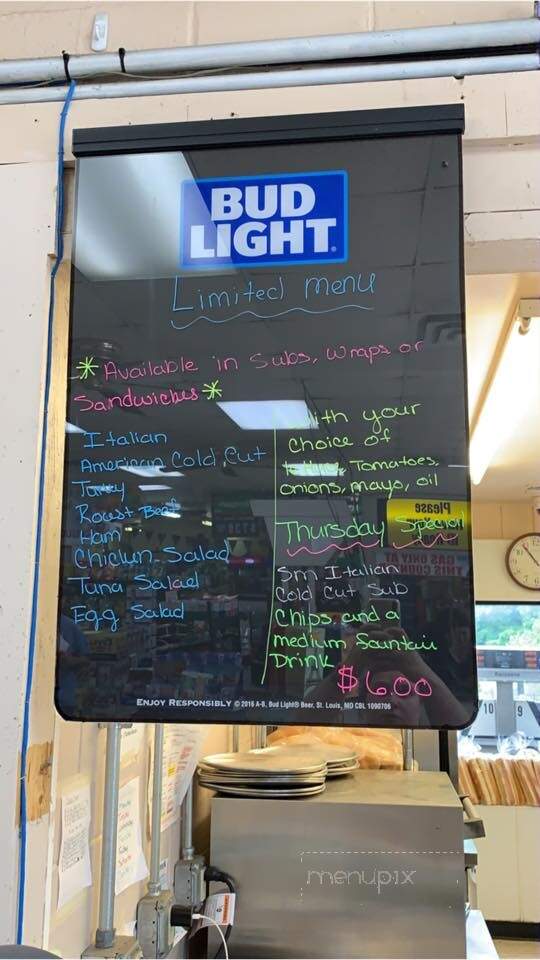 BUD
LIGHT
Limited menu
* Available in Subs, wraps or
Sandwiches *
Italian
American Cold Cut
Turkey
Roast Beef
Ham
Chicken Salad
Tuna Salad
Egg Salad
With your
choice of
Tomatoes,
onions, mayo, oil
Thursday Special
Sm Italian
Cold Cut Sub
Chips and a
medium fountain
Drink
$6.00
ENJOY RESPONSIBLY © 2016 A-B, Bud Light® Beer, St. Louis, MO CBL 1090706
Please
10 9
menupix